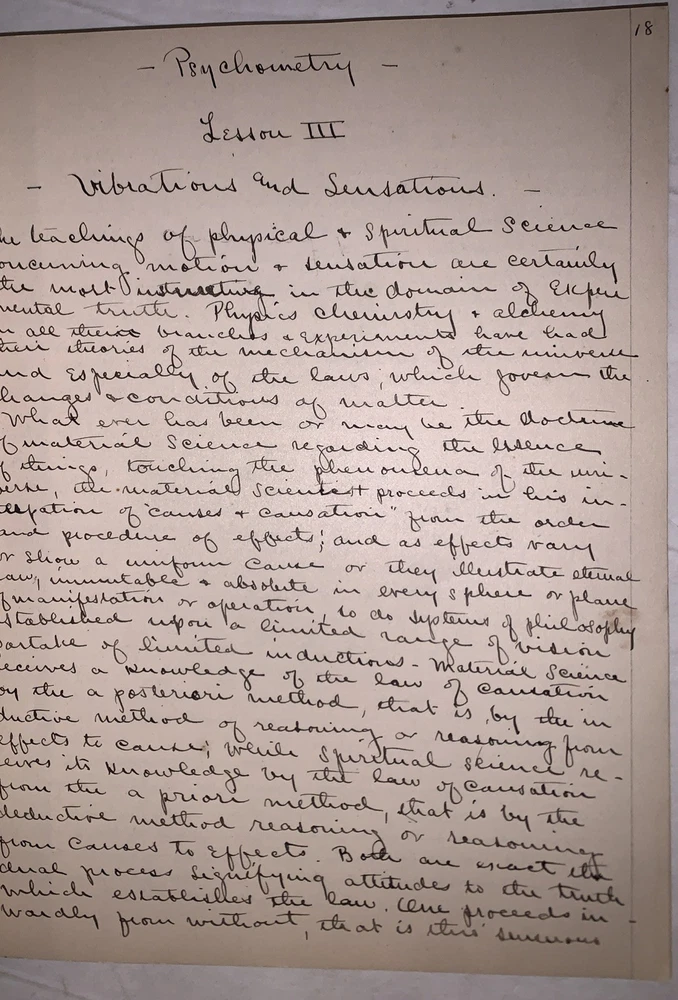 18
- Psychometry -
Lesson III
- Vibrations and Sensations. -
he teachings of physical & Spiritual Science
oncerning motion & sensation are certainly
the most instructive in the domain of Experi
mental truth. Physics chemistry & alchemy
n all their branches & experiments have had
heir theories of the mechanism of the universe
nd Especially of the laws, which govern the
hanges & conditions of matter.
What ever has been or may be the doctrine
f material Science regarding the Essence
f things, touching the phenomena of the uni-
erse, the material Scientist proceeds in his in-
of "causes & causation" from the order
and procedure of effects; and as effects vary
or show a uniform cause or they illustrate eternal
aw, immutable & absolute in every sphere or plane
f manifestation or operation, so do systems of philosophy
stablished upon a limited range of vision
artake of limited inductions - Material Science
eceives a knowledge of the law of Causation
by the a posteriori method, that is, by the in
ductive method of reasoning or reasoning from
effects to cause; while Spiritual science re-
eives its knowledge by the law of Causation
from the a priori method, that is by the
deductive method reasoning or reasoning
from Causes to Effects. Both are exact the
dual process signifying attitudes to the truth
which establishes the law. One proceeds in-
wardly from without, that is this sensuous